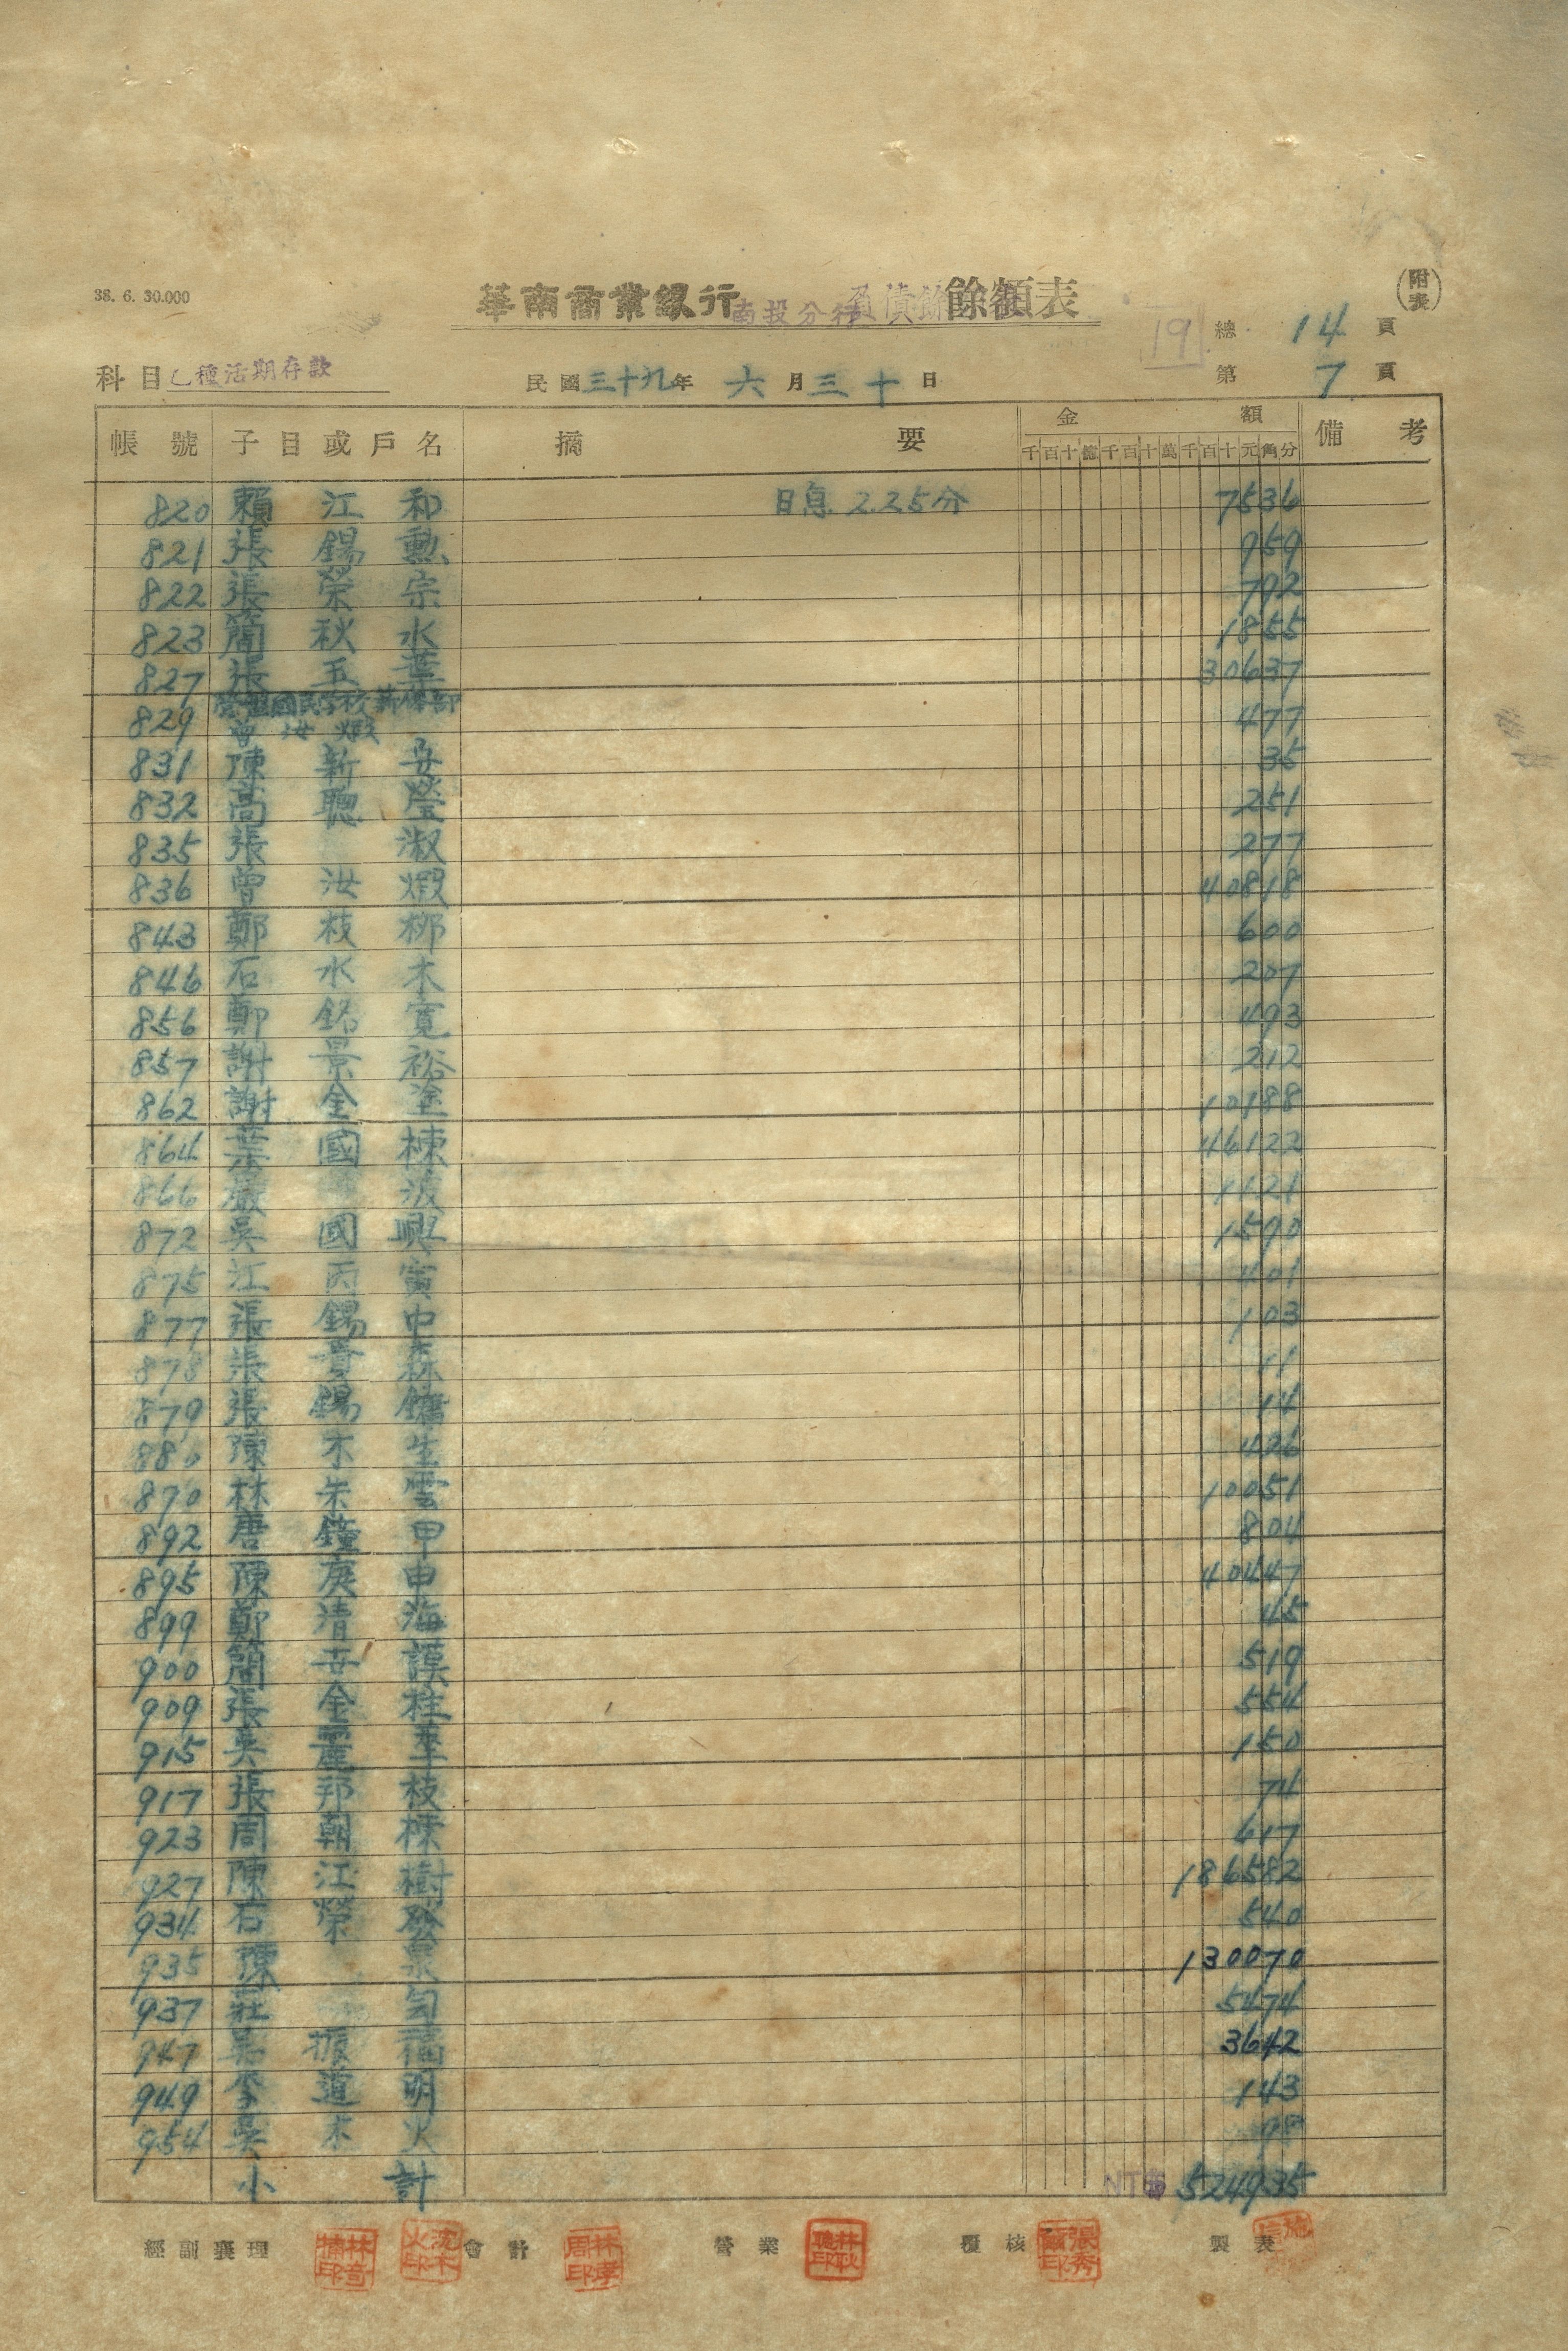 38. 6. 30.000
華南商業銀行 南投分行 餘額表
(附表)
19 總 14 頁
科目 乙種活期存款 民國三十九年 六月三十日 第 7 頁
帳號 子目或戶名 摘要 金額 備考
千百十億千百十萬千百十元角分
820 賴江和 日息 2.25分 7536
821 張錫勲 959
822 張榮宗 792
823 簡秋水 1855
827 張玉葉 30637
國民學校
829 曾汝煆 477
831 陳新安 35
832 高聰瑩 251
835 張淑 277
836 曾汝煆 40818
843 鄭枝柳 600
846 石水木 207
856 鄭銘寬 493
857 謝景裕 212
862 謝全塗 10188
864 葉國棟 46122
866 嚴波 1121
872 吳國興 1590
875 江丙寅 401
877 張錫中 103
878 張貴森 11
879 張錫鏞 14
880 陳木生 426
870 林朱雲 10051
892 唐鐘甲 804
895 陳庚申 40447
899 鄭清海 45
900 簡安謨 519
909 張金柱 554
915 吳季 150
917 張邦枝 74
923 周朝樑 617
927 陳江樹 186582
934 石榮發 540
935 陳泉 130070
937 莊匀 5474
947 吳振福 3642
949 李道明 143
954 吳木火 98
小計 NT$ 524935
經副襄理 會計 營業 覆核 製表